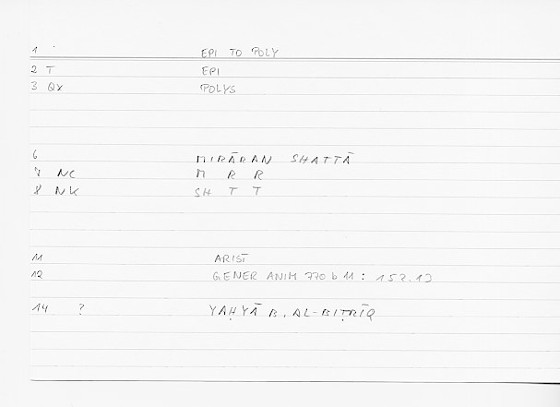 1 EPI TO POLY
2 T EPI
3 QX POLYS
6 MIRĀRAN SHATTĀ
7 NC M R R
8 NK SH T T
11 ARIST
12 GENER ANIM 770 b 11 : 152.13
14 ? YAḤYĀ B. AL-BIṬRĪQ